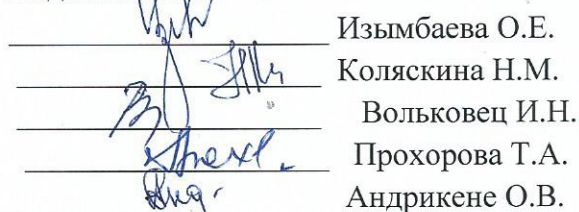 Изымбаева О.Е.
Коляскина Н.М.
Вольковец И.Н.
Прохорова Т.А.
Андрикене О.В.